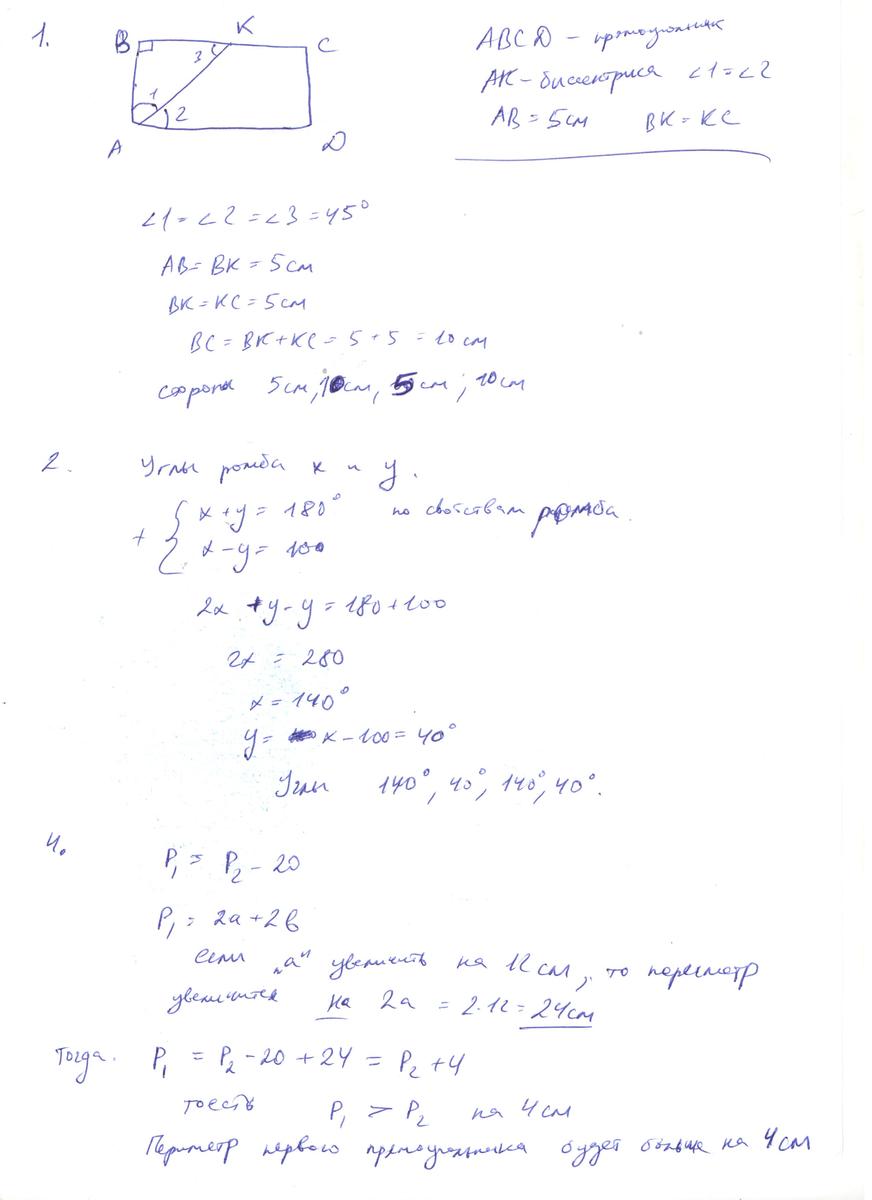 1.
B K C
3
1
2
A D
ABCD - прямоугольник
AK - биссектриса ∠1 = ∠2
AB = 5см BK = KC
∠1 = ∠2 = ∠3 = 45°
AB = BK = 5 см
BK = KC = 5 см
BC = BK + KC = 5 + 5 = 10 см
стороны 5см, 10см, 5см, 10см
2. Углы ромба x и y.
+ { x + y = 180° по свойствам ромба.
x - y = 100
2x + y - y = 180 + 100
2x = 280
x = 140°
y = x - 100 = 40°
Углы 140°, 40°, 140°, 40°.
4.
P₁ = P₂ - 20
P₁ = 2a + 2b
если „a“ увеличить на 12 см, то периметр
увеличится на 2a = 2·12 = 24см
Тогда. P₁ = P₂ - 20 + 24 = P₂ + 4
тоесть P₁ > P₂ на 4см
Периметр первого прямоугольника будет больше на 4 см